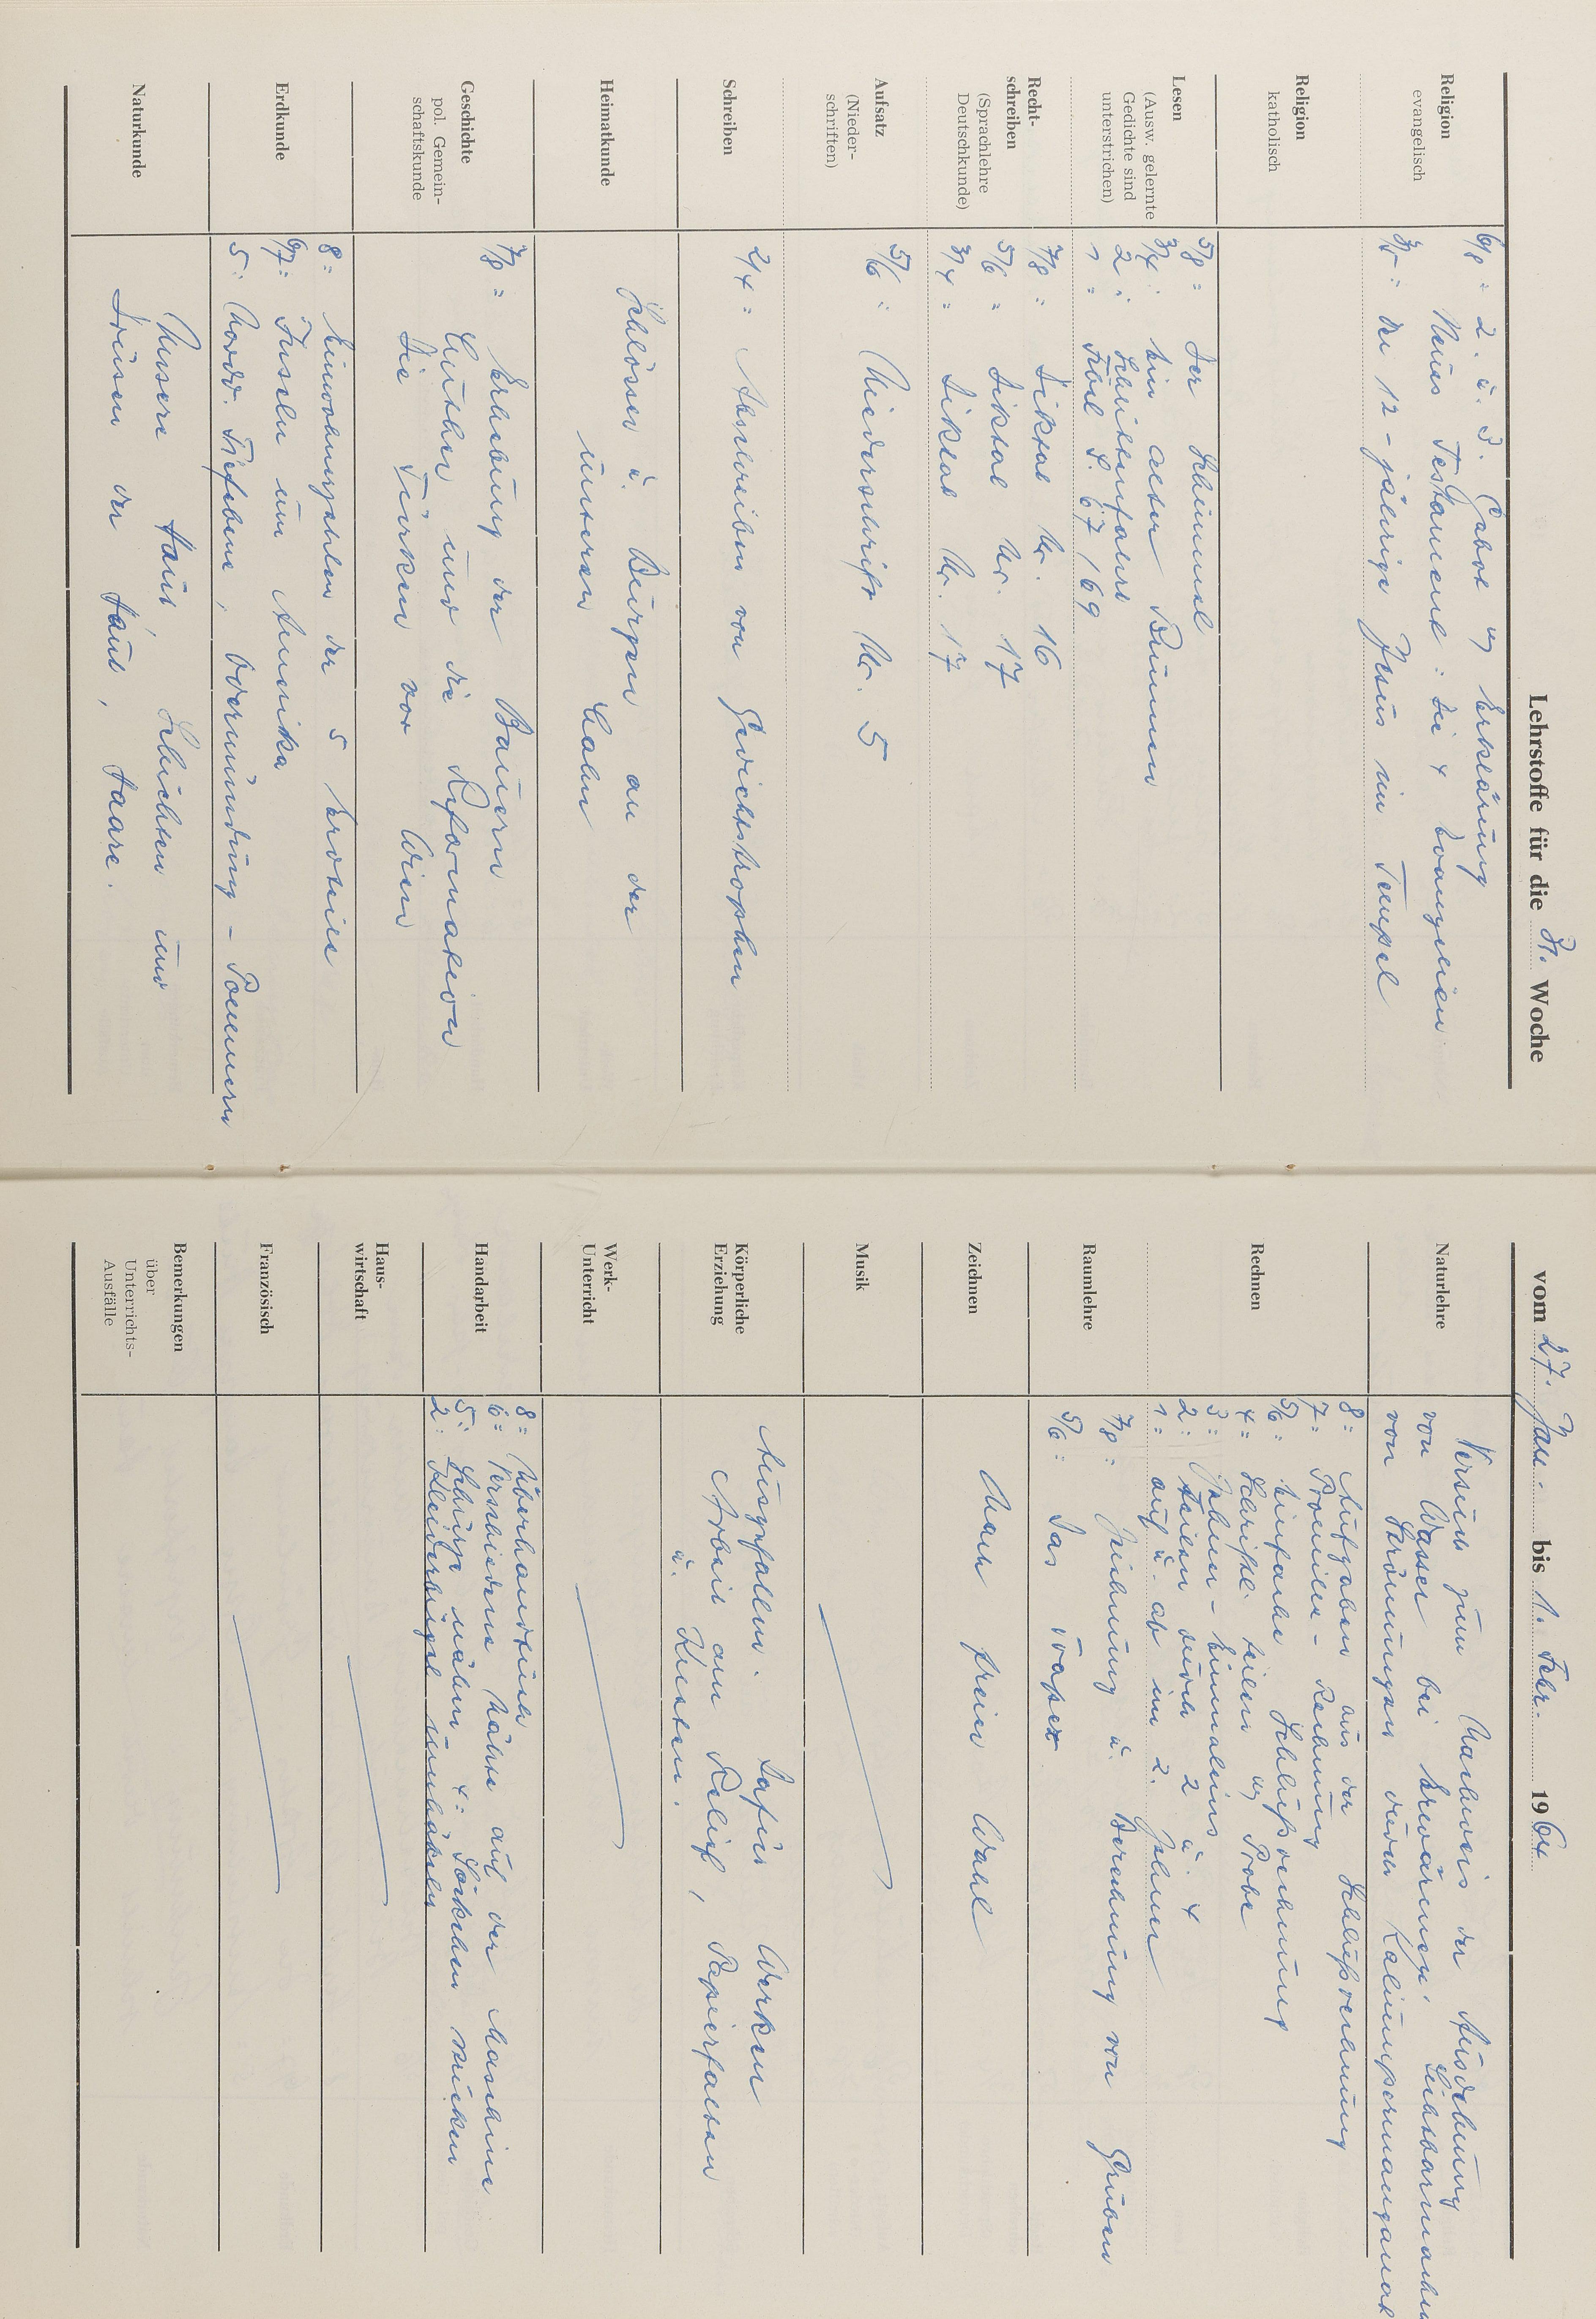 Lehrstoffe für die 31. Woche
Religion
evangelisch
6/8 = 2. u. 3. Gebot u. Erklärung
Neues Testament: Die 4 Evangelien
3/5 = Der 12-jährige Jesus im Tempel
Religion
katholisch
Lesen
(Ausw. gelernte
Gedichte sind
unterstrichen)
5/8 = Der Schimmel
3/4 = Ein alter Brunnen
2 = Schlittenfahrt
1 = Fibel S. 67/69
Recht-
schreiben
(Sprachlehre
Deutschkunde)
7/8 = Diktat Nr. 16
5/6 = Diktat Nr. 17
3/4 = Diktat Nr. 17
Aufsatz
(Nieder-
schriften)
5/6 = Niederschrift Nr. 5
Schreiben
2/4 = Abschreiben von Gedichtstrophen
Heimatkunde
Schlösser u. Burgen an der
unteren Lahn
Geschichte
pol. Gemein-
schaftskunde
7/8 = Erhebung der Bauern
Luther und die Reformation
Die Türken vor Wien
Erdkunde
8 = Einwohnerzahlen der 5 Erdteile
6/7 = Inseln um Amerika
5 = Nordd. Tiefebene, Odermündung - Pommern
Naturkunde
Unsere Haut, Schichten und
Drüsen der Haut, Haare.
vom 27. Jan. bis 1. Febr. 1964
Naturlehre
Versuch zum Nachweis der Ausdehnung
von Wasser bei Erwärmung, Sichtbarmachen
von Strömungen durch Kaliumpermanganat
Rechnen
8 = Aufgaben aus der Schlußrechnung
7 = Promille-Rechnung
5/6 = Einfache Schlußrechnung
4 = Schriftl. teilen u. Probe
3 = Zehner-Einmaleins
2 = Teilen durch 2 u. 4
1 = auf u. ab im 2. Zehner
Raumlehre
7/8 = Zeichnung u. Berechnung von Gruben
5/6 = Das Trapez
Zeichnen
Nach freier Wahl
Musik
Körperliche
Erziehung
Ausgefallen. Dafür Werken
Arbeit am Relief, Papierfalten
u. Kleben.
Werk-
Unterricht
Handarbeit
8 = Überhandtuch
6 = Verschiedene Nähte auf der Maschine
5 = Schürze nähen 4 = Söckchen stricken
2 = Kleiderbügel umhäkeln
Haus-
wirtschaft
Französisch
Bemerkungen
über
Unterrichts-
Ausfälle